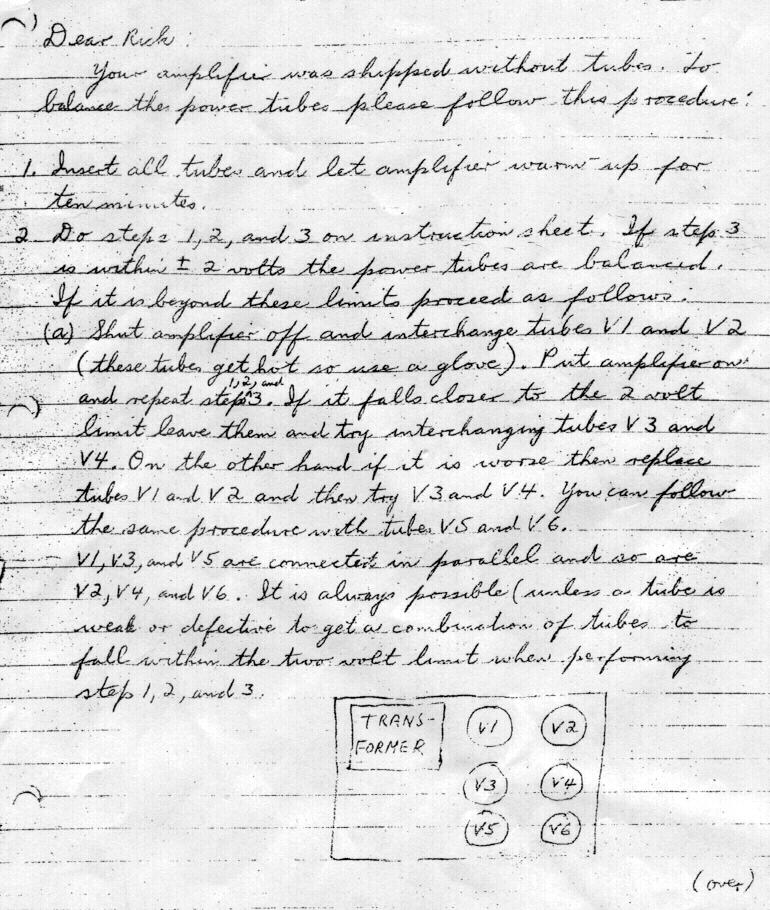 Dear Rick:
Your amplifier was shipped without tubes. To
balance the power tubes please follow this procedure:
1. Insert all tubes and let amplifier warm-up for
ten minutes.
2. Do steps 1, 2, and 3 on instruction sheet. If step 3
is within ± 2 volts the power tubes are balanced.
If it is beyond these limits proceed as follows:
(a) Shut amplifier off and interchange tubes V1 and V2
(these tubes get hot so use a glove). Put amplifier on
and repeat steps 1, 2, and 3. If it falls closer to the 2 volt
limit leave them and try interchanging tubes V3 and
V4. On the other hand if it is worse then replace
tubes V1 and V2 and then try V3 and V4. You can follow
the same procedure with tubes V5 and V6.
V1, V3, and V5 are connected in parallel and so are
V2, V4, and V6. It is always possible (unless a tube is
weak or defective to get a combination of tubes to
fall within the two volt limit when performing
step 1, 2, and 3.
TRANS-
FORMER
V1 V2
V3 V4
V5 V6
(over)